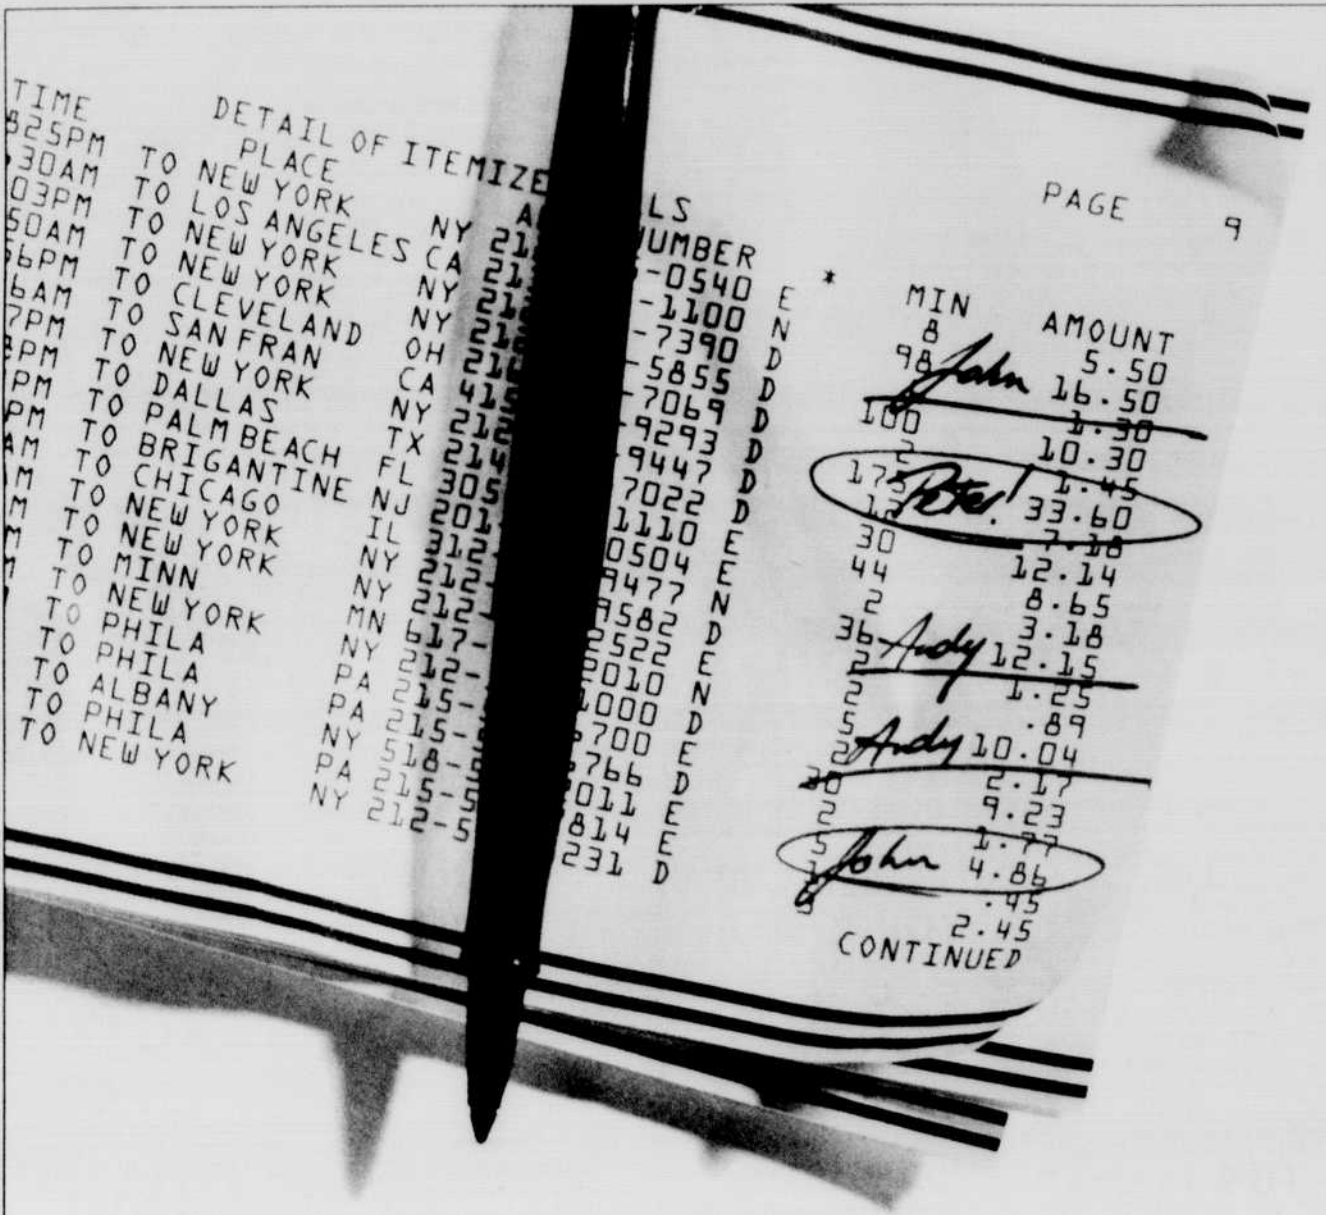 DETAIL OF ITEMIZE LS PAGE 9
TIME PLACE UMBER * MIN AMOUNT
825PM TO NEW YORK NY 21 -0540 E 8 5.50
30AM TO LOS ANGELES CA 21 -1100 N 98 John 16.50
03PM TO NEW YORK NY 21 -7390 D 1.30
50AM TO NEW YORK NY 21 -5855 D 100 10.30
56PM TO CLEVELAND OH 21 -7069 D 2 1.45
6AM TO SAN FRAN CA 41 -9293 D 175 Peter! 33.60
7PM TO NEW YORK NY 212 -9447 D 12 7.18
PM TO DALLAS TX 214 7022 D 30 12.14
PM TO PALM BEACH FL 305 1110 E 44 8.65
PM TO BRIGANTINE NJ 201 0504 E 2 3.18
AM TO CHICAGO IL 312 9477 N 36 Andy 12.15
M TO NEW YORK NY 212- 9582 D 2 1.25
M TO NEW YORK NY 212- 2522 E 2 .89
M TO MINN MN 617- 2010 N 5 Andy 10.04
TO NEW YORK NY 212- 1000 D 2 2.17
TO PHILA PA 215- 700 E 30 9.23
TO PHILA PA 215- 766 D 2 1.77
TO ALBANY NY 518- 011 E 5 John 4.86
TO PHILA PA 215-5 814 E .95
TO NEW YORK NY 212-5 231 D 2.45
CONTINUED